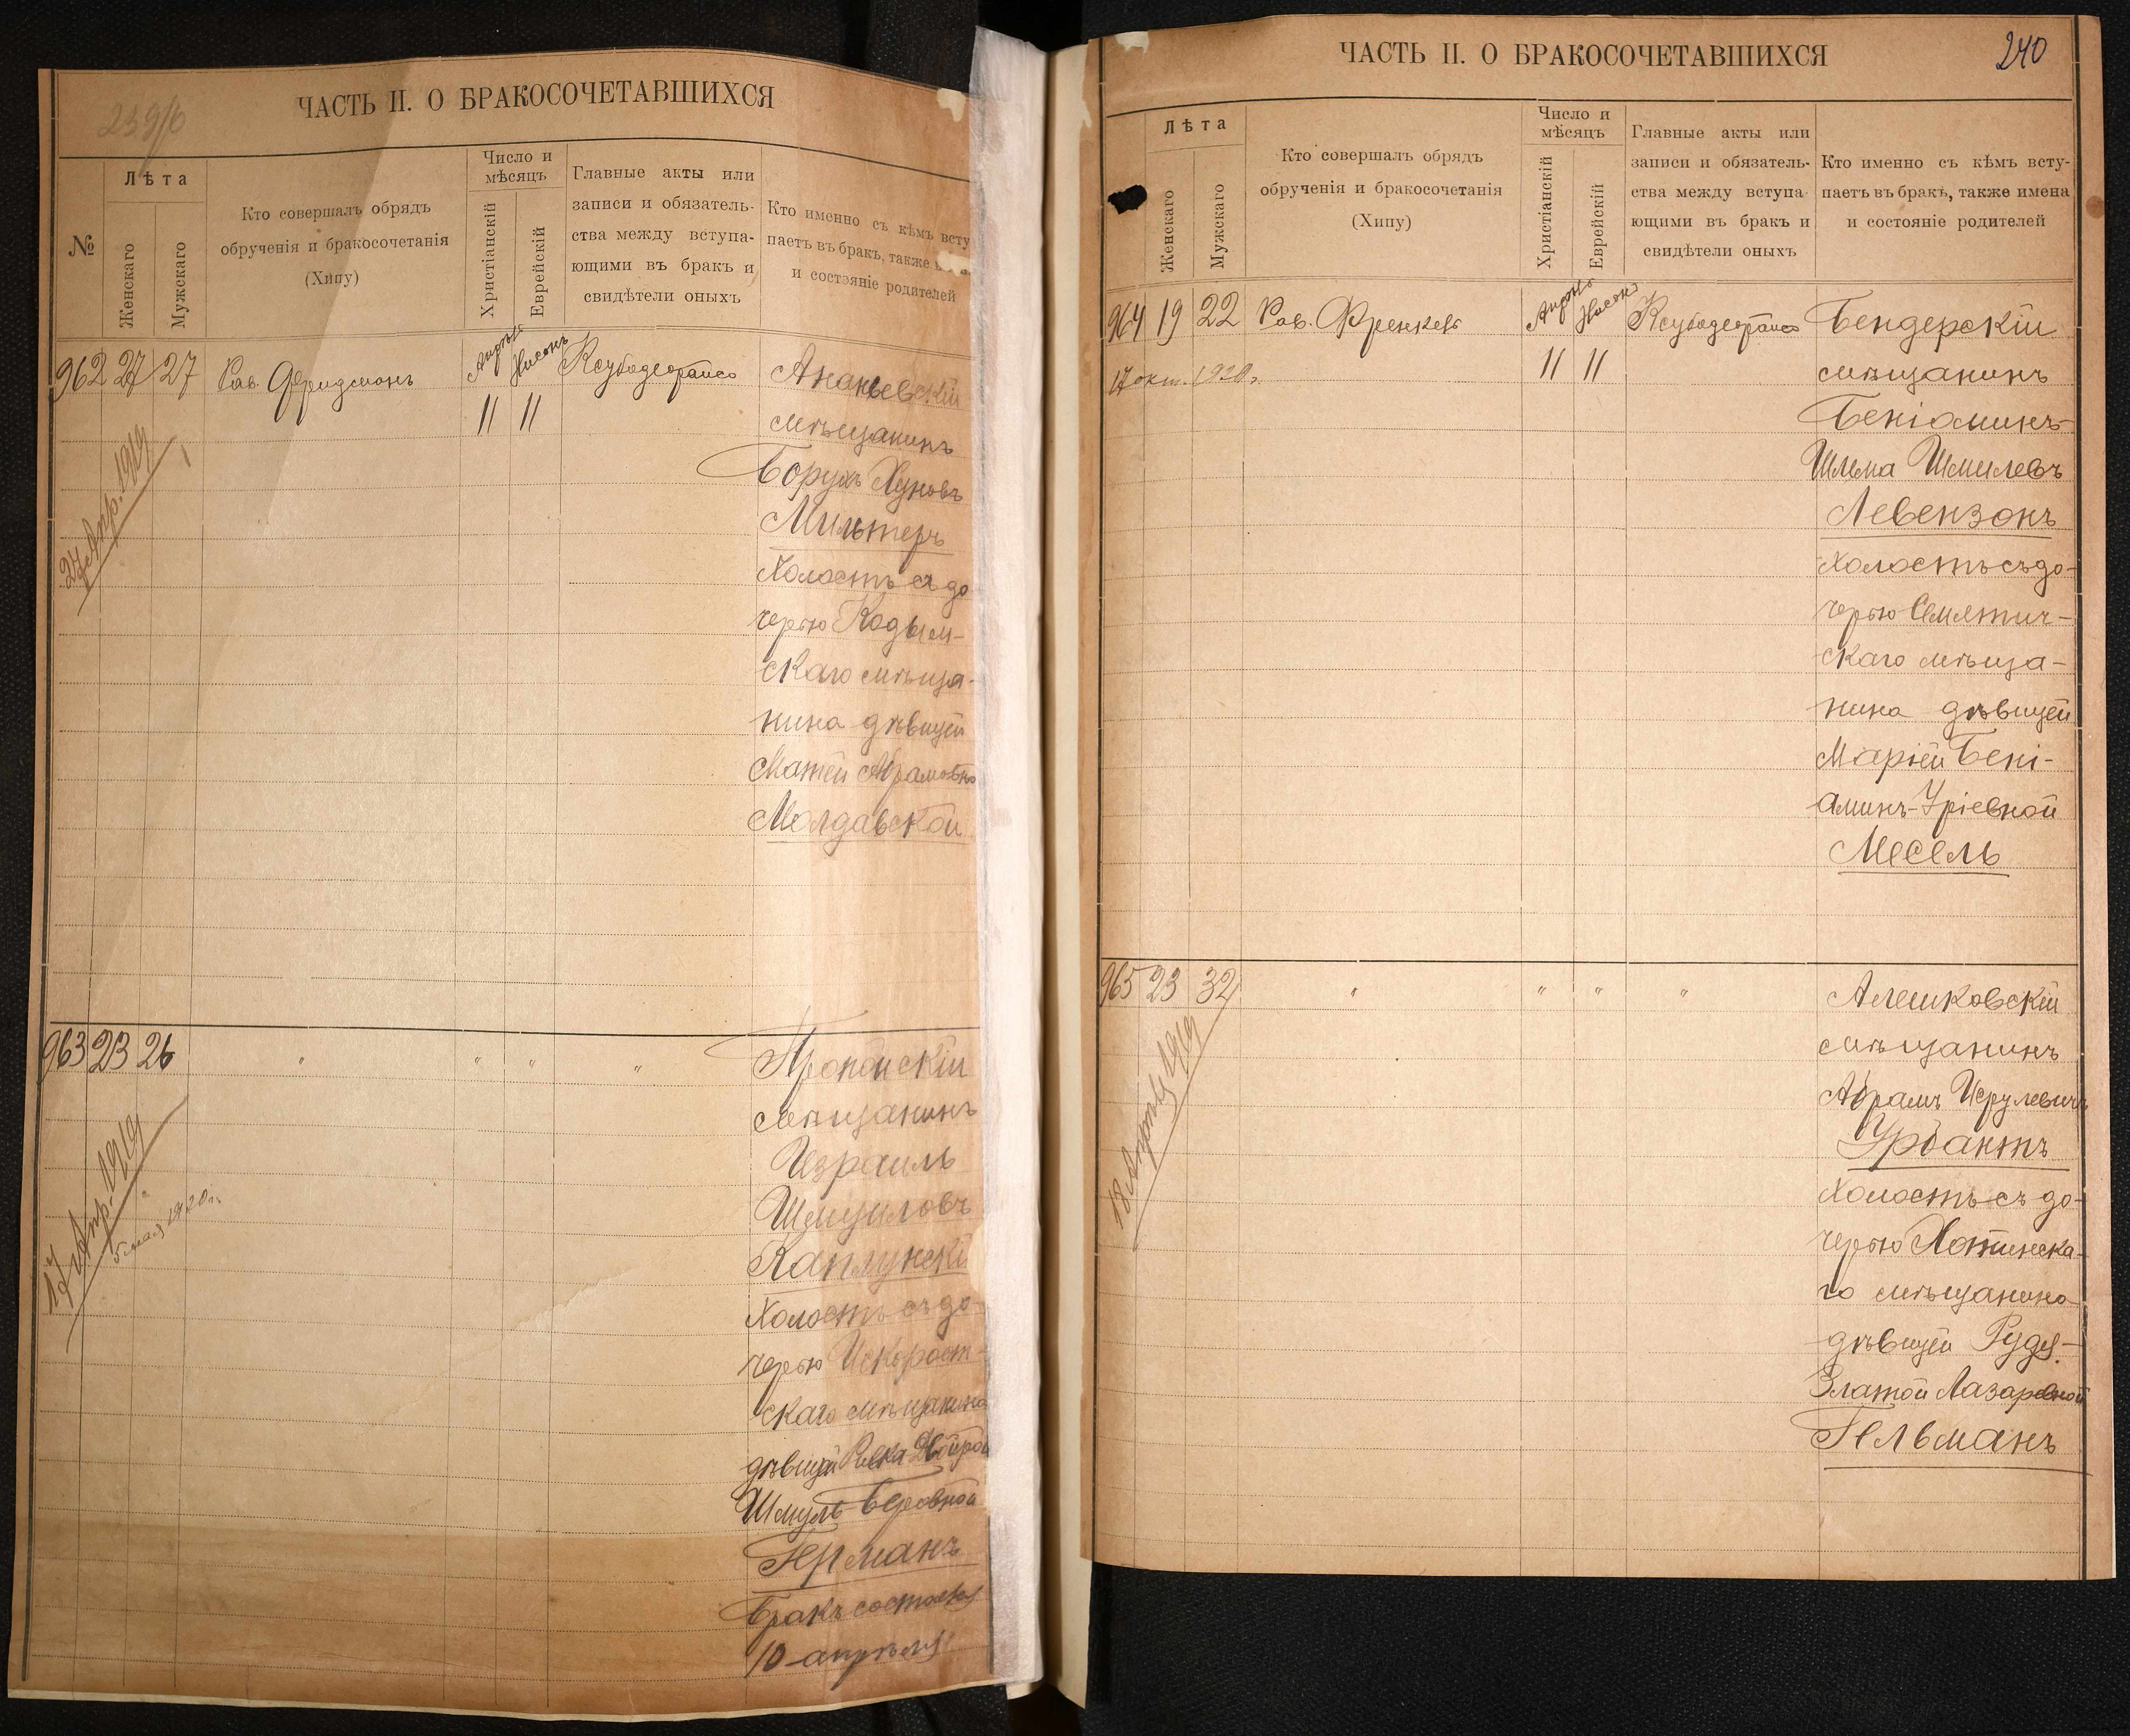 239/б
ЧАСТЬ II. О БРАКОСОЧЕТАВШИХСЯ
№
Лѣта
Женскаго
Мужскаго
Кто совершалъ обрядъ
обрученія и бракосочетанія
(Хипу)
Число и
мѣсяцъ
Христіанскій
Еврейскій
Главные акты или
записи и обязатель-
ства между вступа-
ющими въ бракъ и
свидѣтели оныхъ
Кто именно съ кѣмъ всту
паетъ въ бракъ, также
и состояніе родителей
962 27 27 Рав. Фридманъ
Апрѣль Нисонъ
11 11
27 Апр. 1919
Ананьевскій
мѣщанинъ
Борухъ Хуновъ
Мильтеръ
Холостъ съ до
черью Кодым-
скаго мѣща-
нина дѣвицей
Абрамовно
Молдавской
963 23 26 " " " "
17 Апр. 1919
1920г.
Пропойскій
мѣщанинъ
Израиль
Шмуиловъ
Каплунскій
Холостъ съ до-
черью Искорост-
скаго мѣщанина
дѣвицей Ривка Двойрой
Шмуль-Беровной
Германъ
Бракъ состоялся
10 апрѣля
ЧАСТЬ II. О БРАКОСОЧЕТАВШИХСЯ
240
Лѣта
Женскаго
Мужскаго
Кто совершалъ обрядъ
обрученія и бракосочетанія
(Хипу)
Число и
мѣсяцъ
Христіанскій
Еврейскій
Главные акты или
записи и обязатель-
ства между вступа
ющими въ бракъ и
свидѣтели оныхъ
Кто именно съ кѣмъ всту-
паетъ въ бракъ, также имена
и состояніе родителей
964 19 22 Рав. Френкель
Апрѣль Нисонъ
11 11
17 окт. 1920г.
Бендерскій
мѣщанинъ
Беніаминъ-
Шлема Шмилевъ
Левензонъ
Холостъ съ до-
черью Семятич-
скаго мѣща-
нина дѣвицей
Маріей Бені-
аминъ-Уріевной
Месель
965 23 32 " " " "
18 Апрѣля 1919
Алешковскій
мѣщанинъ
Абрамъ Исрулевичъ
Урбантъ
Холостъ съ до-
черью Хотинска-
го мѣщанина
дѣвицей Рудя-
Златой Лазаревной
Гельманъ